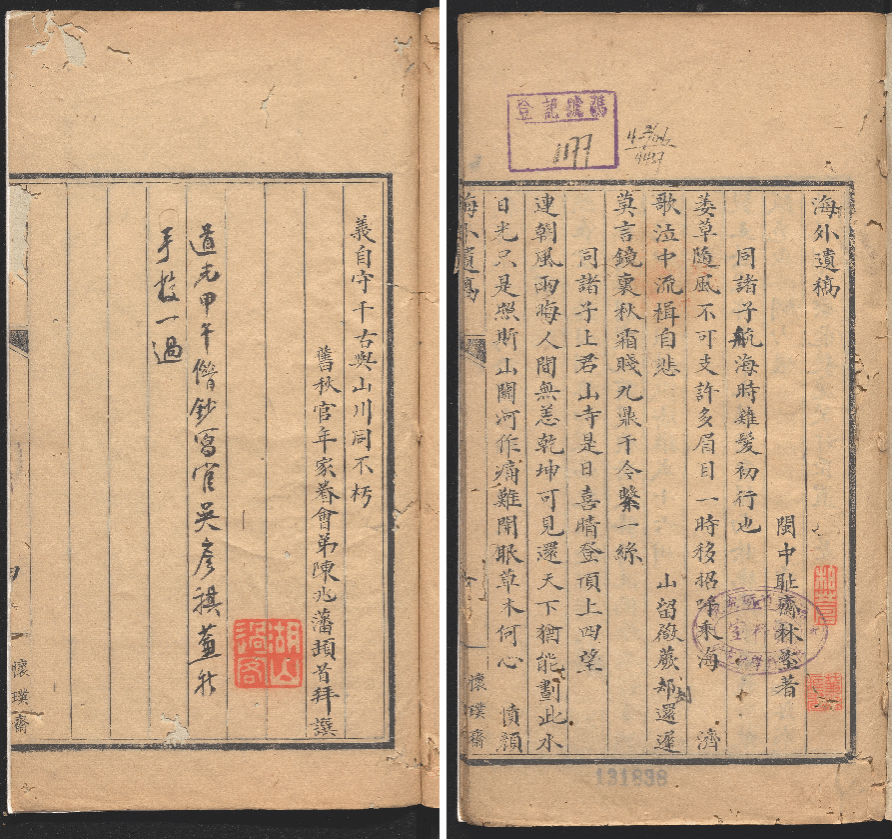 登記號碼
1177
海外遺稿
閩中耻齋林垐著
同諸子航海時薙髮初行也
萎草隨風不可支許多眉目一時移招呼乘海 濟
歌泣中流楫自悲 山留薇蕨却還遲
莫言鏡裏秋霜賤九鼎于今繫一絲
同諸子上君山寺是日喜晴登頂上四望
連朝風雨晦人間無恙乾坤可見還天下猶能劃此水
日光只是照斯山關河作痛難開眼草木何心 憤顏
海外遺稿
懷璞齋
131838
義自守千古與山川同不朽
舊秋官年家眷會弟陳兆藩頓首拜譔
道光甲午借鈔寫官吳彥祺
手校一過
湖山過客
懷璞齋